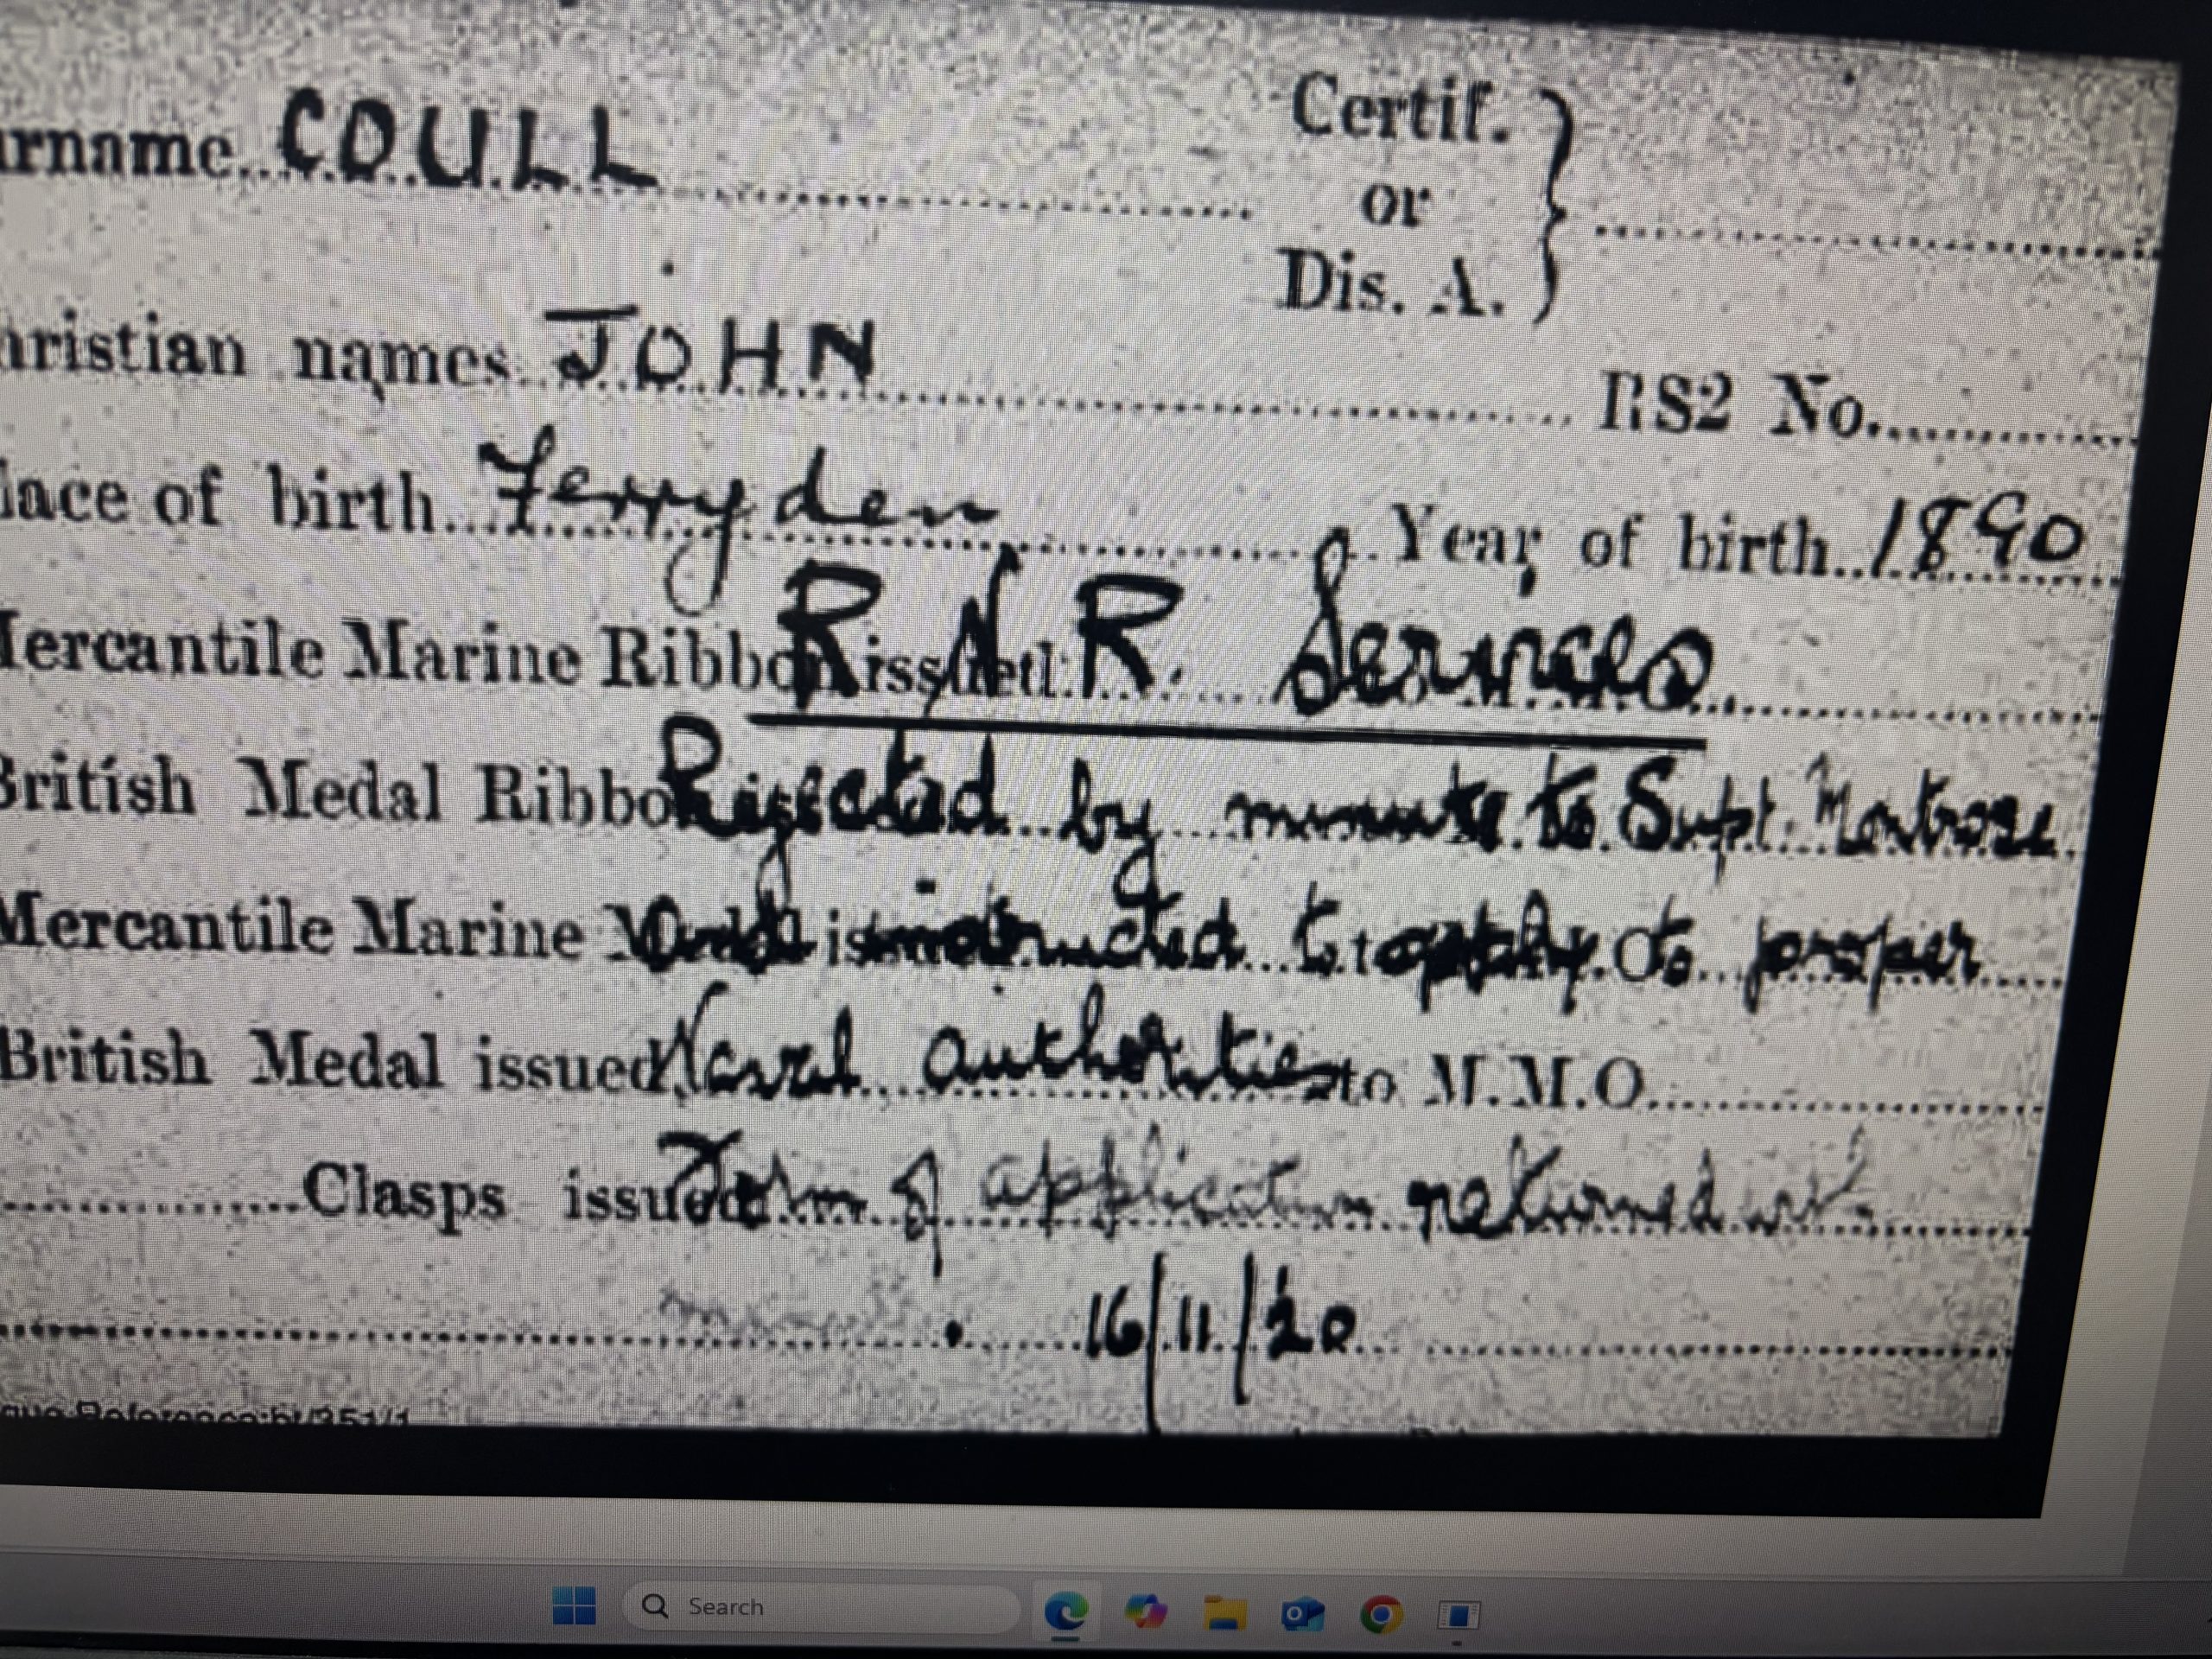 urname COULL Certif. or Dis. A.
hristian names JOHN RS2 No.
lace of birth Ferryden Year of birth 1890
Mercantile Marine Ribbon issued R.N.R. Services
British Medal Ribbon Rejected by minute to Supt. Montrose
Mercantile Marine and instructed to apply to proper
British Medal issued Naval authorities to M.M.O.
Clasps issued Form of application returned with
16/11/20
Reference:bt/351/1
Search